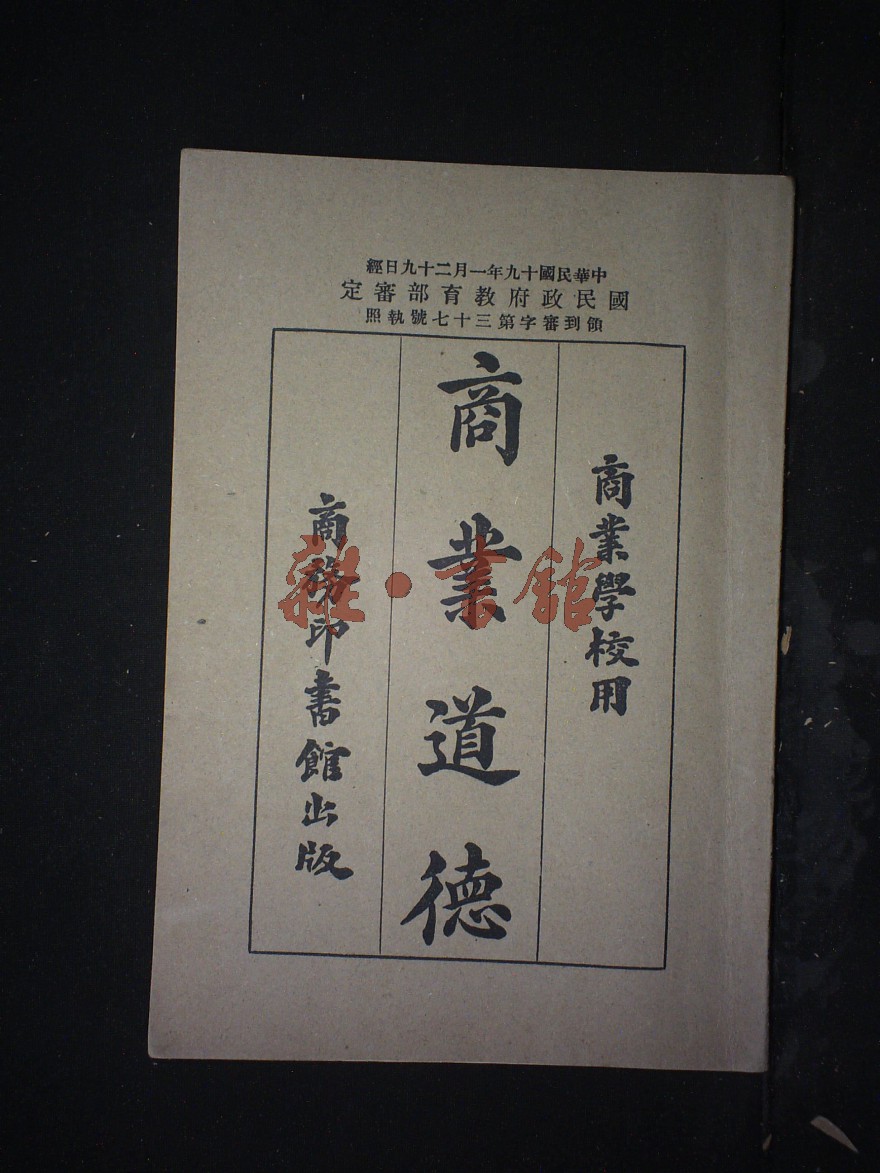 中華民國十九年一月二十九日經
國民政府教育部審定
領到審字第三十七號執照
商業學校用
商業道德
商務印書館出版
雜·書館